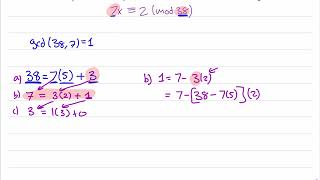 7x ≡ 2 (mod 38)
gcd (38, 7) = 1
a) 38 = 7(5) + 3
b) 7 = 3(2) + 1
c) 3 = 1(3) + 0
b) 1 = 7 - 3(2)
= 7 - [38 - 7(5)](2)